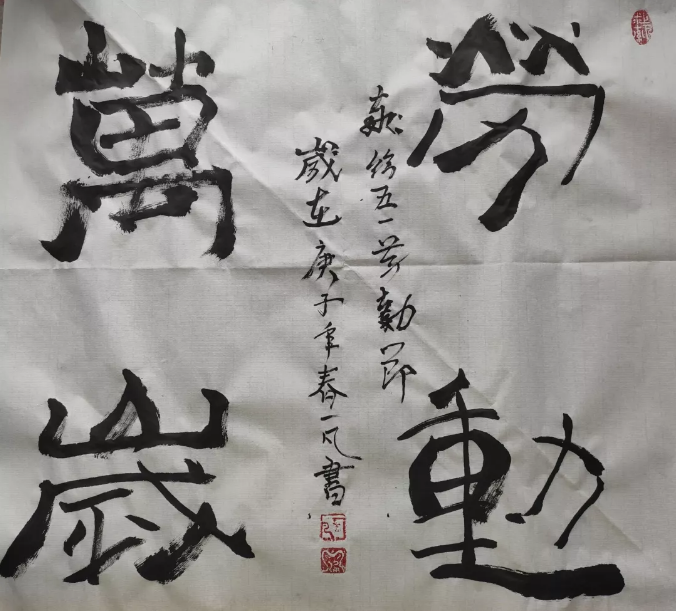 勞動
萬歲
献给五一劳動节
歲在庚子年春一凡書